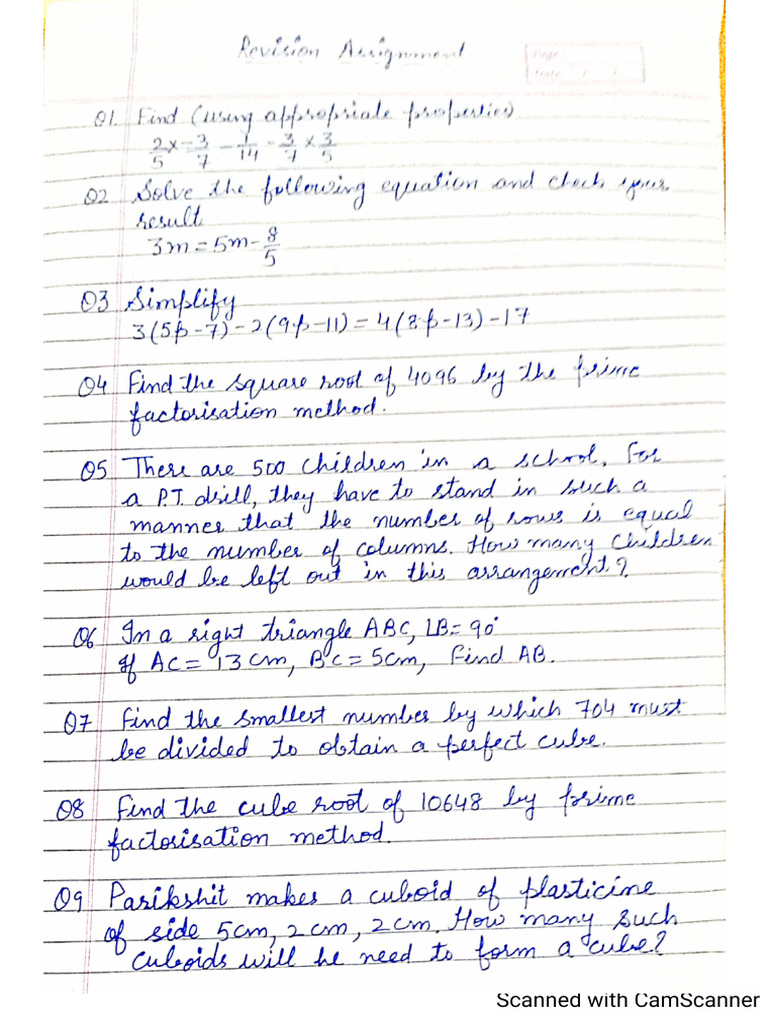 Revision Assignment
Page:
Date: / /
Q1. Find (using appropriate properties)
2/5 × -3/7 - 1/14 - 3/7 × 3/5
Q2 Solve the following equation and check your
result
3m = 5m - 8/5
Q3 Simplify
3(5p-7)-2(9p-11) = 4(8p-13)-17
Q4 Find the square root of 4096 by the prime
factorisation method.
Q5 There are 500 children in a school. For
a P.T. drill, they have to stand in such a
manner that the number of rows is equal
to the number of columns. How many children
would be left out in this arrangement?
Q6 In a right triangle ABC, ∠B = 90°
If AC = 13 cm, BC = 5cm, Find AB.
Q7 Find the smallest number by which 704 must
be divided to obtain a perfect cube.
Q8 Find the cube root of 10648 by prime
factorisation method.
Q9 Parikshit makes a cuboid of plasticine
of side 5cm, 2cm, 2cm. How many such
cuboids will he need to form a cube?
Scanned with CamScanner